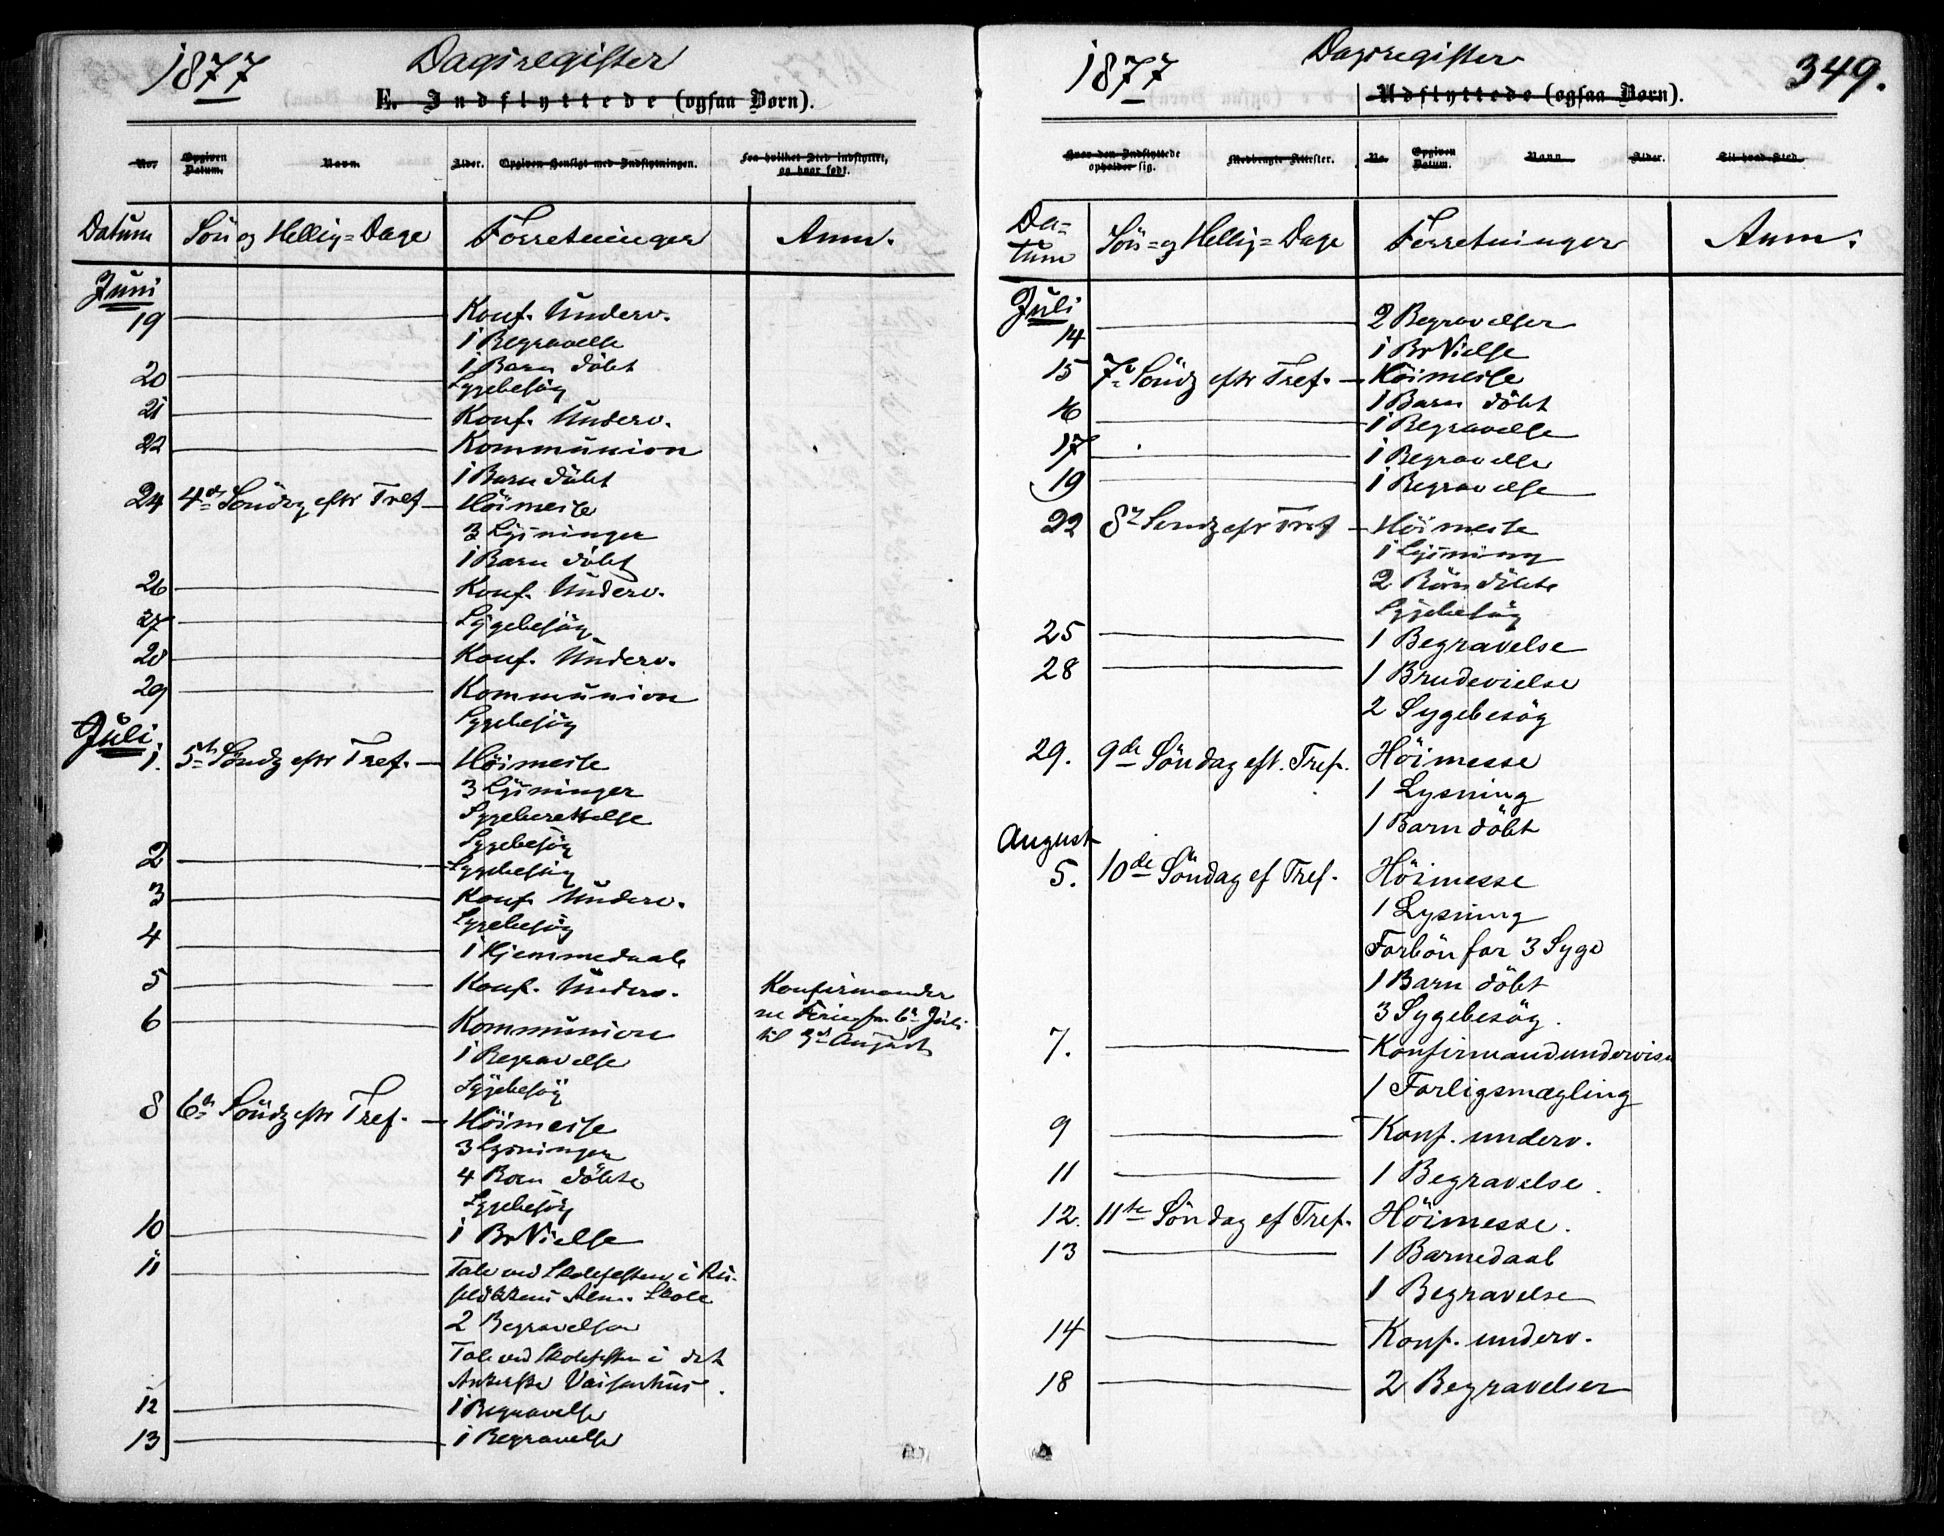 1877 Dagsregister
E. Indflyttede (ogsaa Børn).
No. Opgiven Datum. Navn. Alder. Opgiven Hensigt med Indflytningen. Fra hvilket Sted indflyttet, og hvor født.
Datum Søn og Hellig=Dage Forretninger Anm.
Juni
19 Konf. Underv.
1 Begravelse
1 Barn döbt
20 Sygebesög
21 Konf. Underv.
22 Kommunion
1 Barn döbt
24 4de Söndag eftr Tref Höimesse
3 Lysninger
1 Barn döbt
26 Konf. Underv.
27 Sygebesög
28 Konf. Underv.
29 Kommunion
Sygebesög
Juli
1. 5te Söndg eftr Tref. Höimesse
3 Lysninger
Sygeberettelse
Sygebesög
2 Sygebesög
3 Konf. Underv.
Sygebesög
4 1 Hjemmedaab
5 Konf. Underv. Konfirmander
6 Kommunion ne Ferie fra 6te Juli
til 3die August
1 Begravelse
Sygebesög
8 6te Söndg eftr Tref. Höimesse
3 Lysninger
4 Börn döbte
Sygebesög
10 1 BrVielse
11 Tale ved Skolefesten i
Alm. Skole
2 Begravelser
Tale ved Skolefesten i det
Ankerske Vaisenhus.
12 1 Begravelse
13 1 Begravelse
1877 Dagsregister 349.
Udflyttede (ogsaa Børn).
Hvor den Indflyttede opholder sig. Medbragte Attester. No. Opgiven Datum. Navn. Alder. Til hvad Sted.
Da-
tum Sön= og Hellig=Dage Forretninger Anm.
Juli
14 2 Begravelser
1 BrVielse
15 7de Söndg eftr Tref. Höimesse
1 Barn döbt
16 1 Begravelse
17 1 Begravelse
19 1 Begravelse
22 8de Söndg eftr Tref Höimesse
1 Lysning
2 Börn döbte
Sygebesög
25 1 Begravelse
28 1 Brudevielse
2 Sygebesög
29. 9de Söndag eft. Tref. Höimesse
1 Lysning
1 Barn döbt
August
5. 10de Söndag ef Tref. Höimesse
1 Lysning
Forbön for 3 Syge
1 Barn döbt
3 Sygebesög.
7. Konfirmandundervisn
1 Forligsmægling
9 Konf. underv.
11 1 Begravelse.
12. 11te Söndag ef Tref. Höimesse.
13 1 Barnedaab
1 Begravelse
14 Konf. underv.
18 2 Begravelser